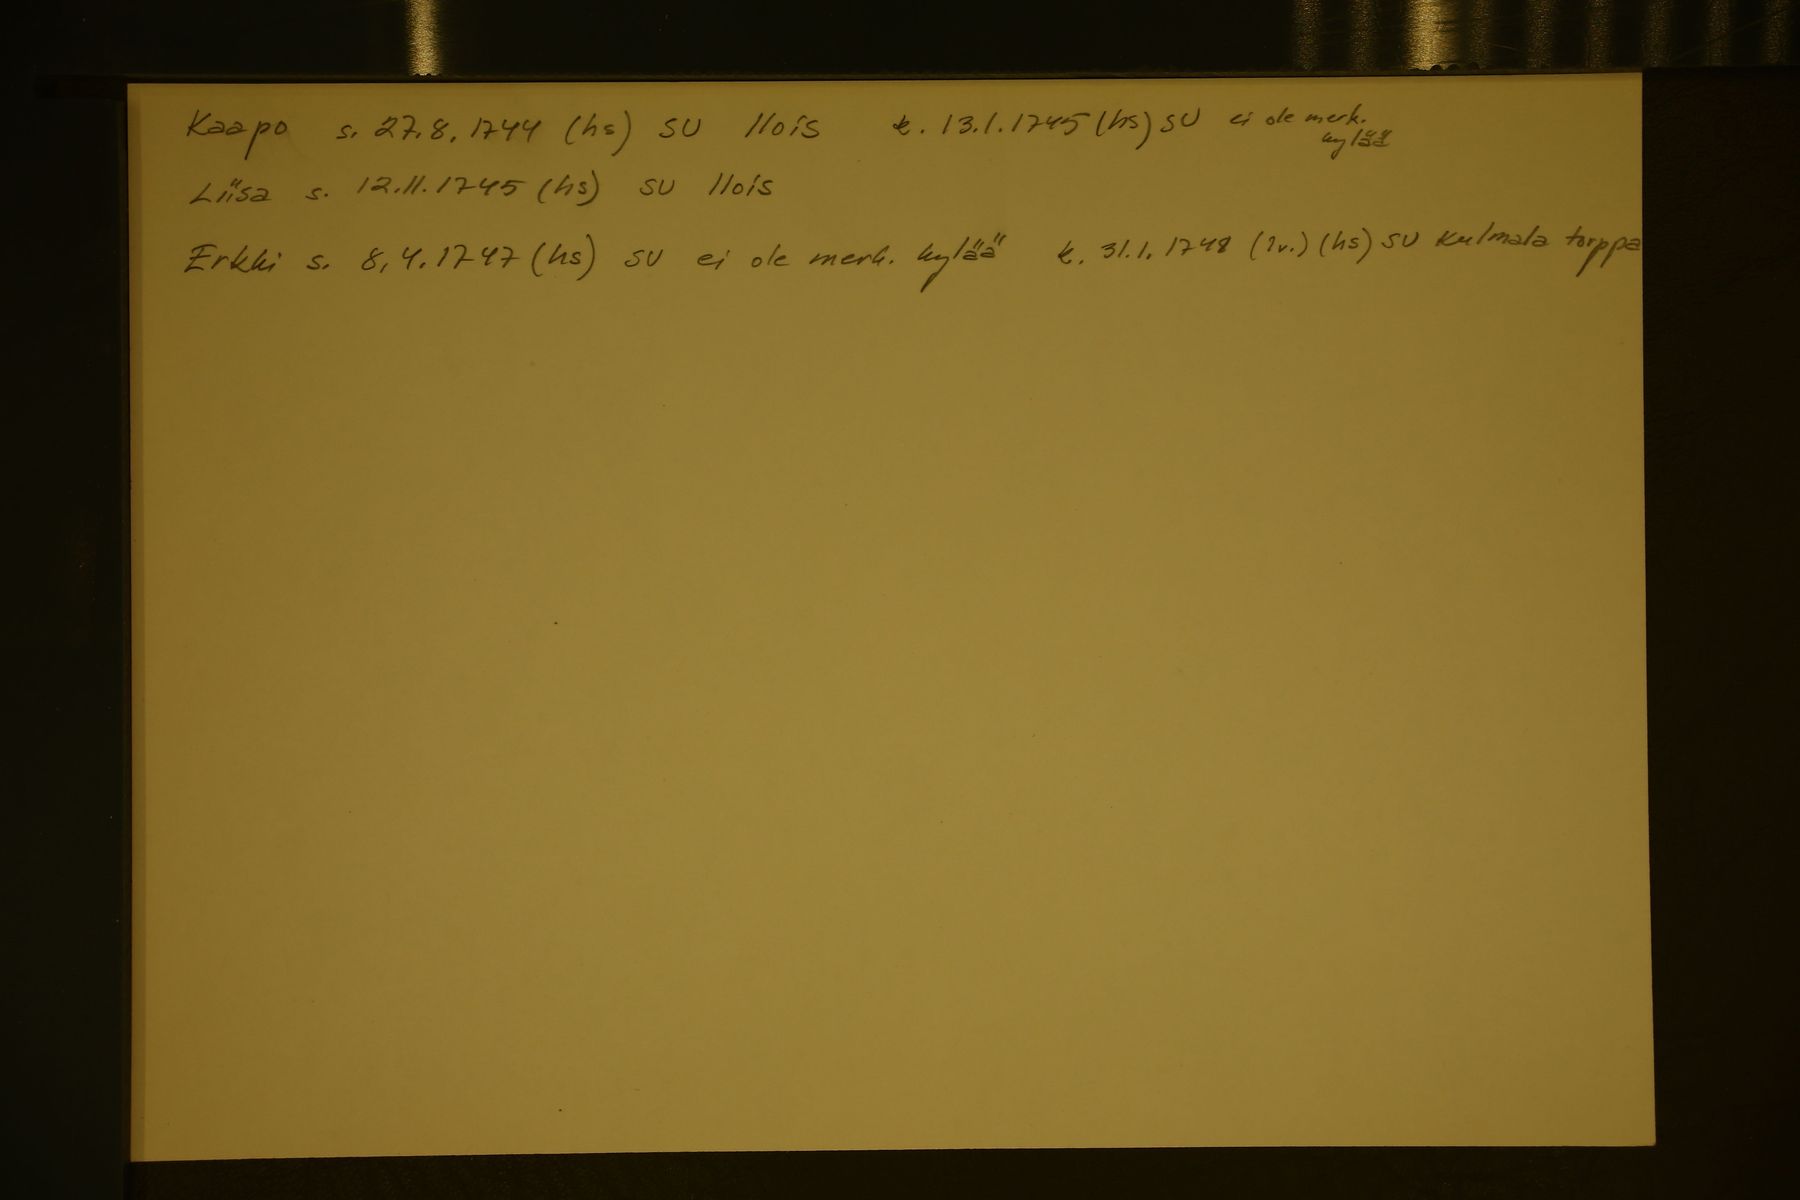 Kaapo s. 27.8.1744 (hs) SU Ilois k. 13.1.1745 (hs) SU ei ole merk.
kylää
Liisa s. 12.11.1745 (hs) SU Ilois
Erkki s. 8.4.1747 (hs) SU ei ole merk. kylää k. 31.1.1748 (1v.) (hs) SU Kulmala torppa